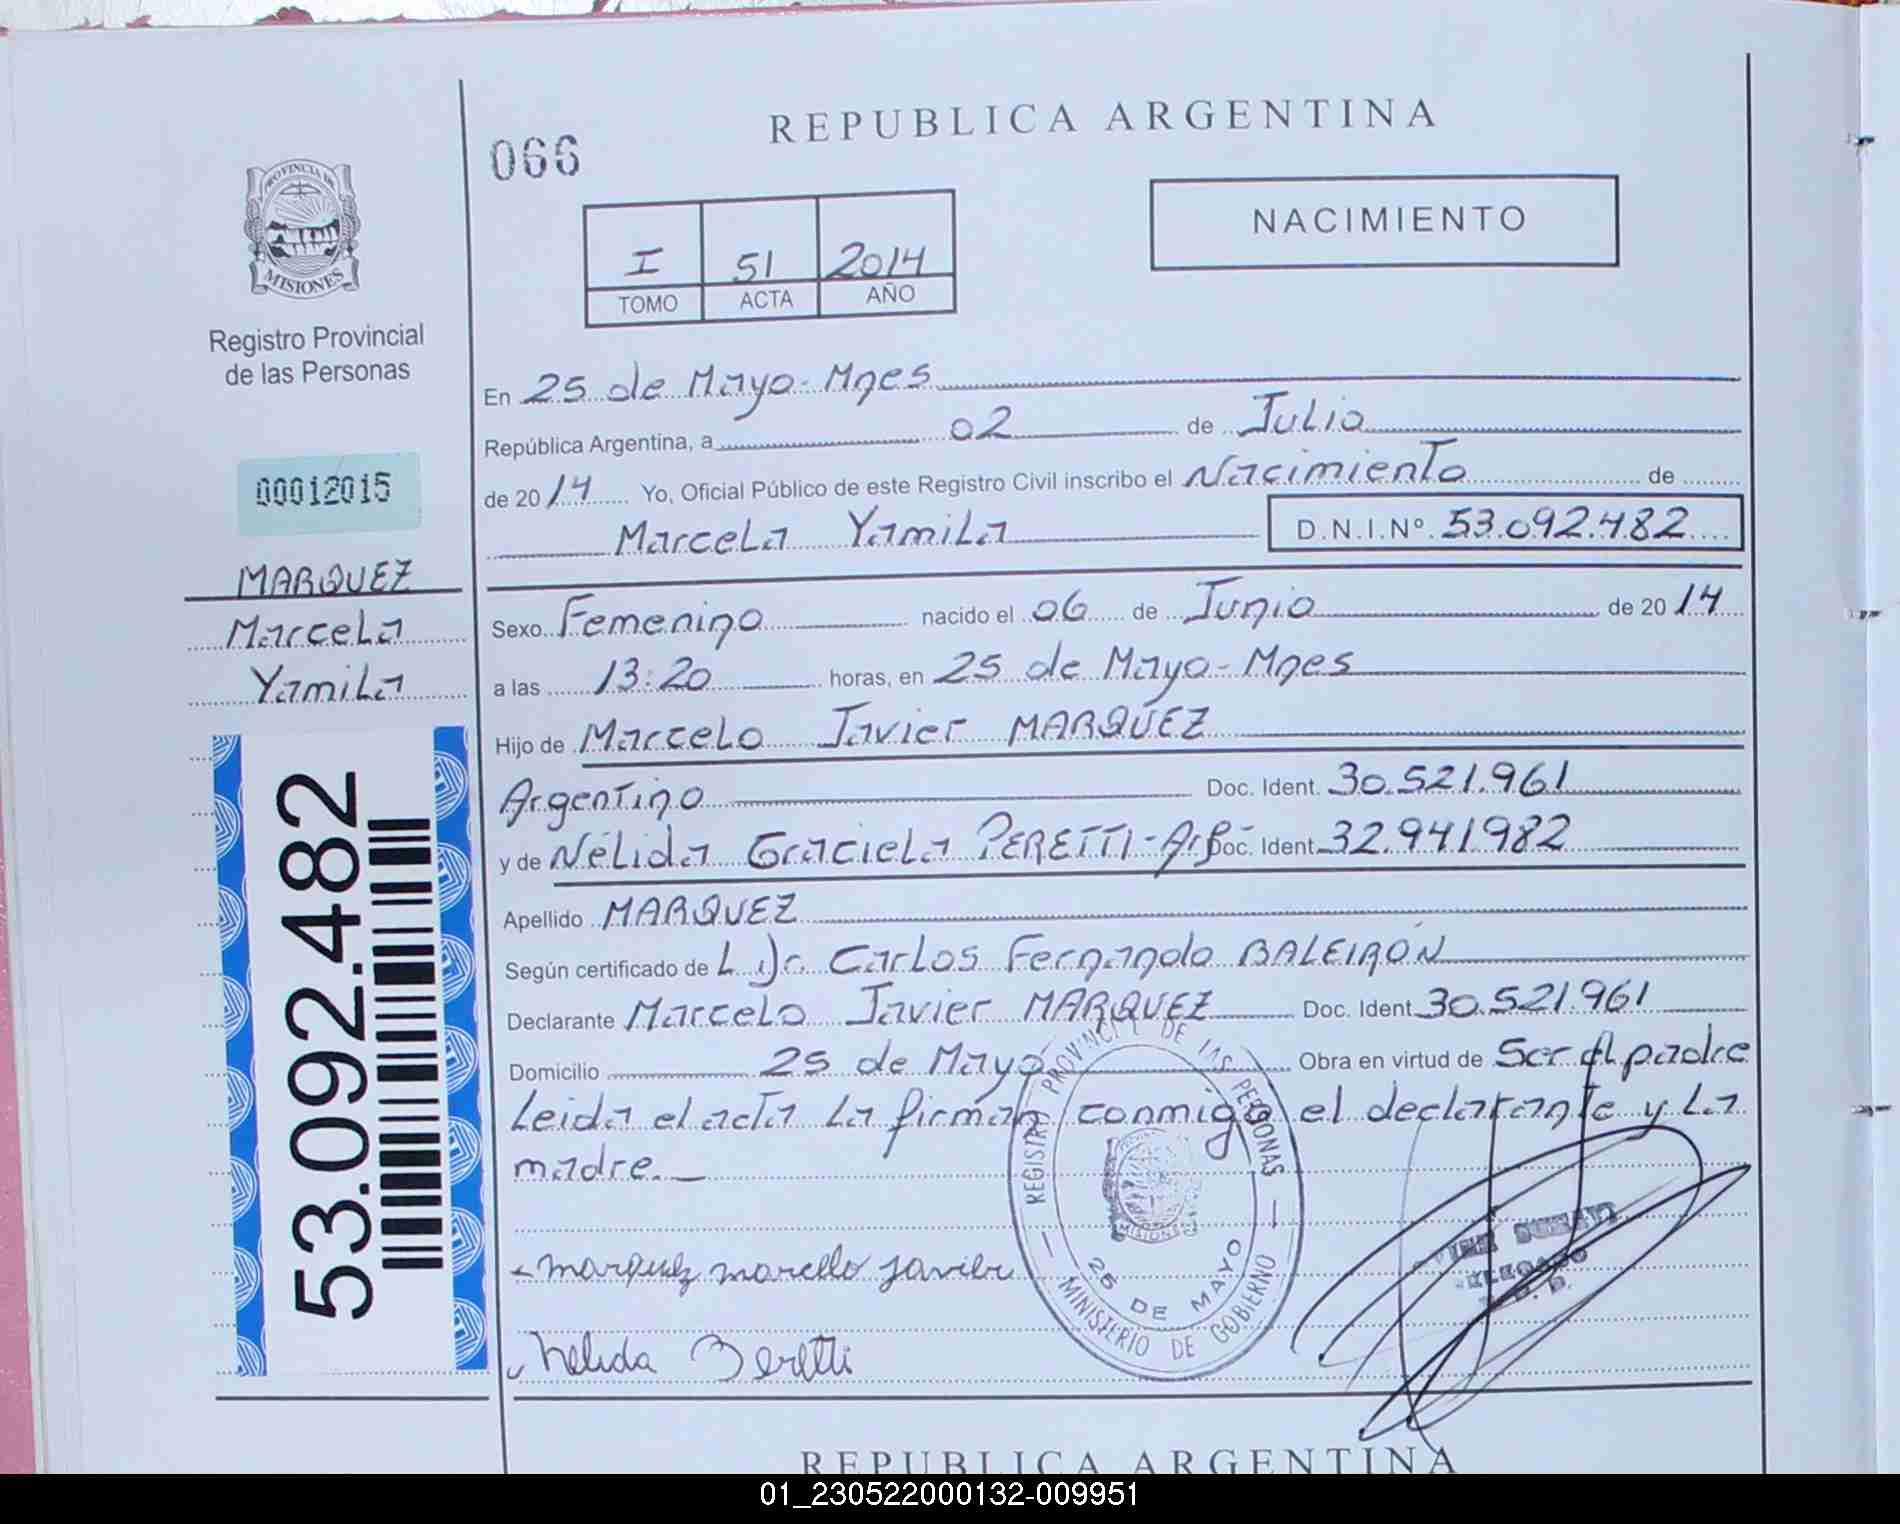 REPUBLICA ARGENTINA
066
NACIMIENTO
I 51 2014
TOMO ACTA AÑO
PROVINCIA DE
MISIONES
Registro Provincial
de las Personas
00012015
MARQUEZ
Marcela
Yamila
53.092.482
En 25 de Mayo-Mnes
República Argentina, a 02 de Julio
de 2014 Yo, Oficial Público de este Registro Civil inscribo el Nacimiento de
Marcela Yamila D.N.I.Nº 53.092.482
Sexo Femenino nacido el 06 de Junio de 2014
a las 13:20 horas, en 25 de Mayo-Mnes
Hijo de Marcelo Javier MARQUEZ
Argentino Doc. Ident. 30.521.961
y de Nélida Graciela PERETTI-Arg Doc. Ident 32.941982
Apellido MARQUEZ
Según certificado de L Dr. Carlos Fernando BALEIRÓN
Declarante Marcelo Javier MARQUEZ Doc. Ident 30.521.961
Domicilio 25 de Mayo Obra en virtud de Ser el padre
Leida el acta La firman conmigo el declarante y La
madre.
REGISTRO PROVINCIAL DE LAS PERSONAS
MISIONES
25 DE MAYO
MINISTERIO DE GOBIERNO
DELEGADO
marquez marcello Javier
Nelida Beretti
REPUBLICA ARGENTINA
01_230522000132-009951